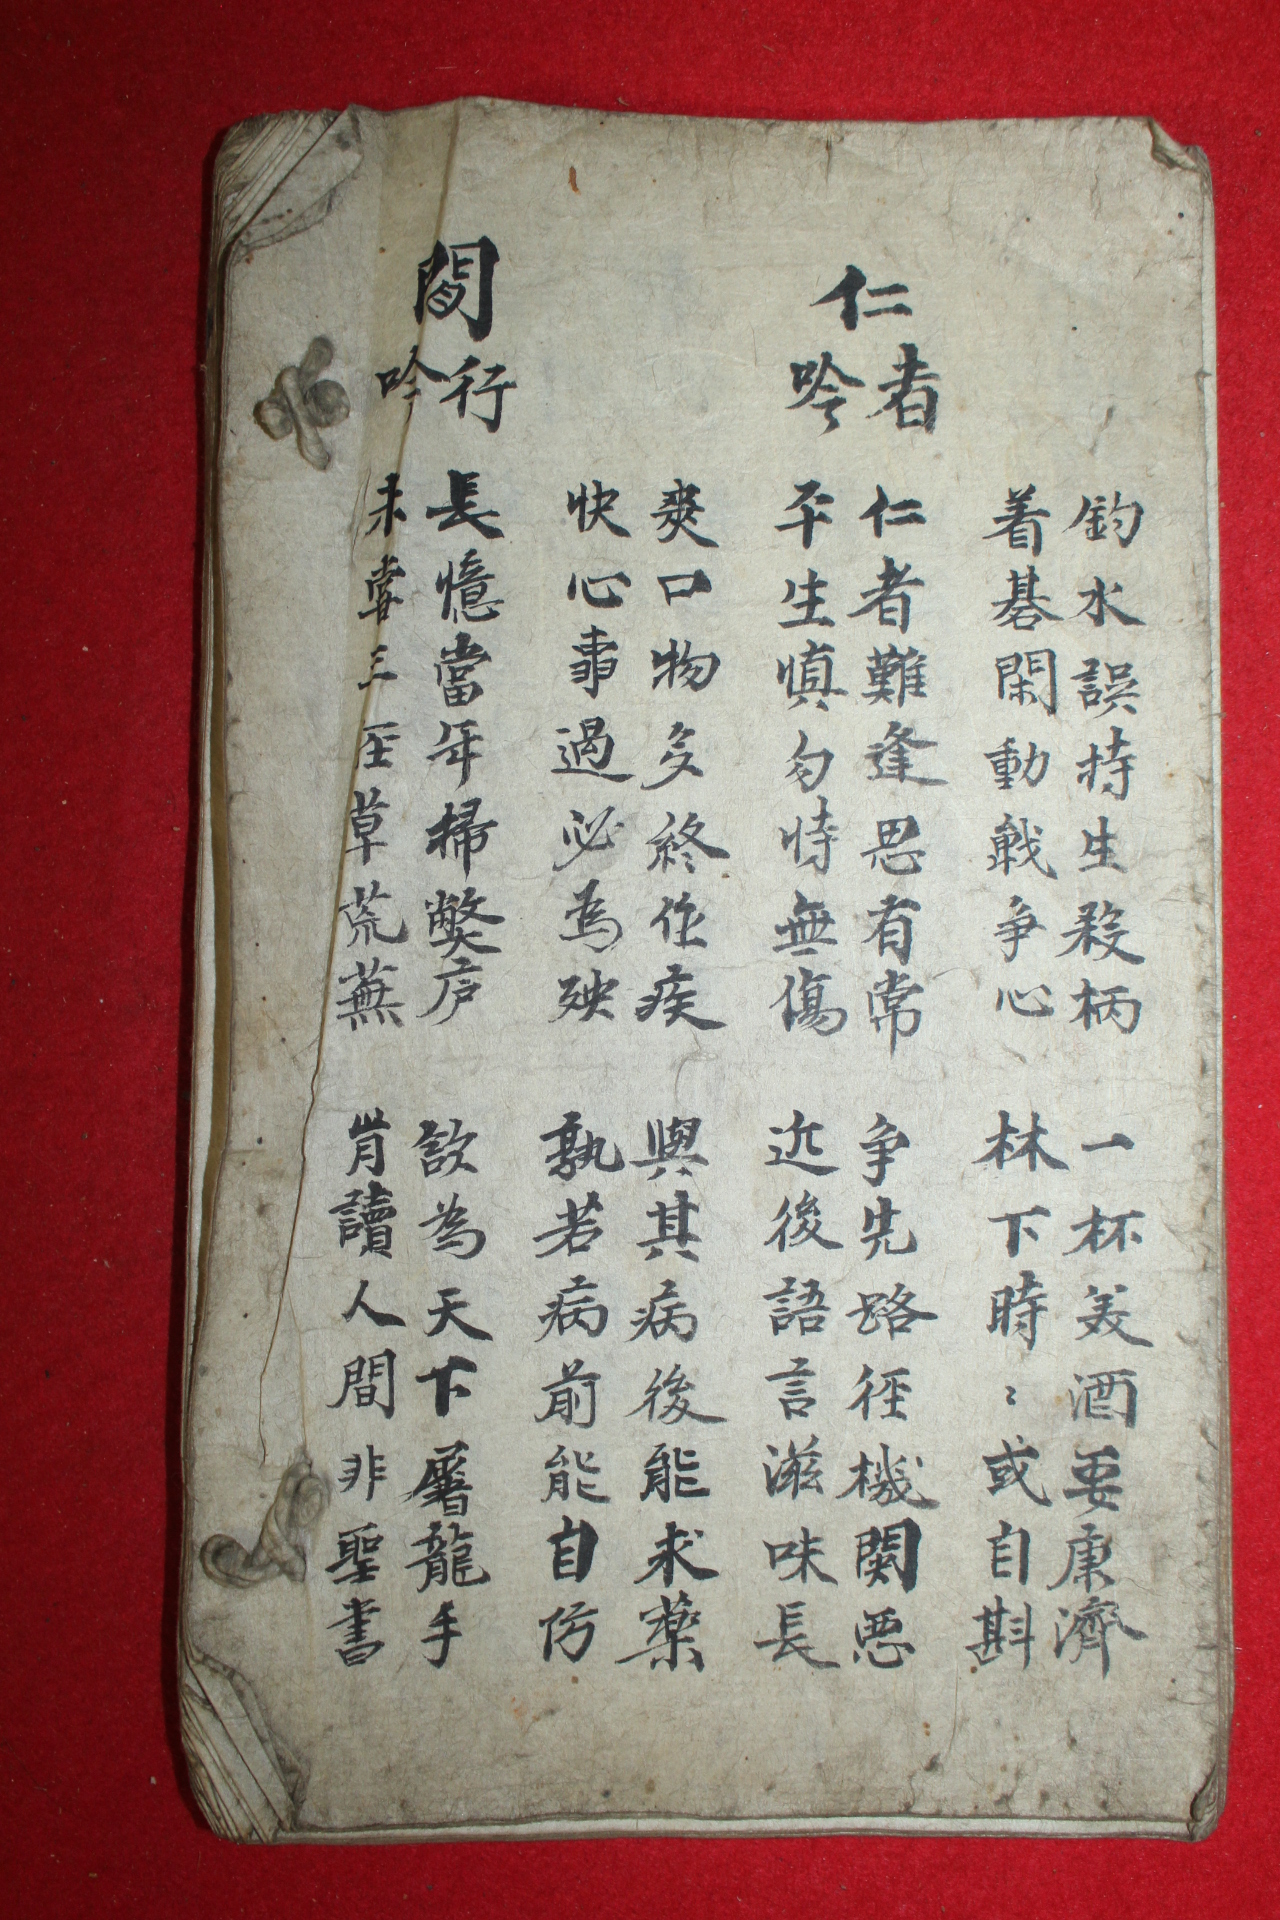 釣水誤持生殺柄
着碁閑動戰爭心
一杯美酒要康濟
林下時〻或自斟
仁者吟
仁者難逢思有常
平生愼勿恃無傷
爭先路徑機關惡
近後語言滋味長
爽口物多終作疾
快心事過必為殃
與其病後能求藥
孰若病前能自防
閒行吟
長憶當年掃弊庐
未甞三坙草荒蕪
欻為天下屠龍手
肯讀人間非聖書